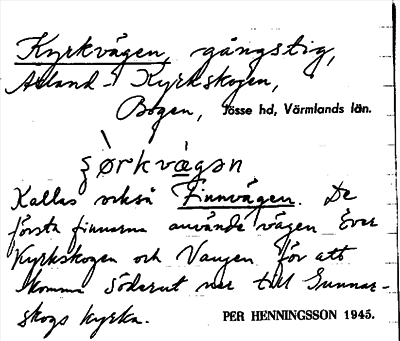 Kyrkvägen, gångstig,
Åland - Kyrkskogen,
Bogen, Jösse hd, Värmlands län.
ʂørkvægən
Kallas också Finnvägen. De
första finnarna använde vägen över
Kyrkskogen och Vangen för att
komma söderut ner till Gunnar-
skogs kyrka.
PER HENNINGSSON 1945.